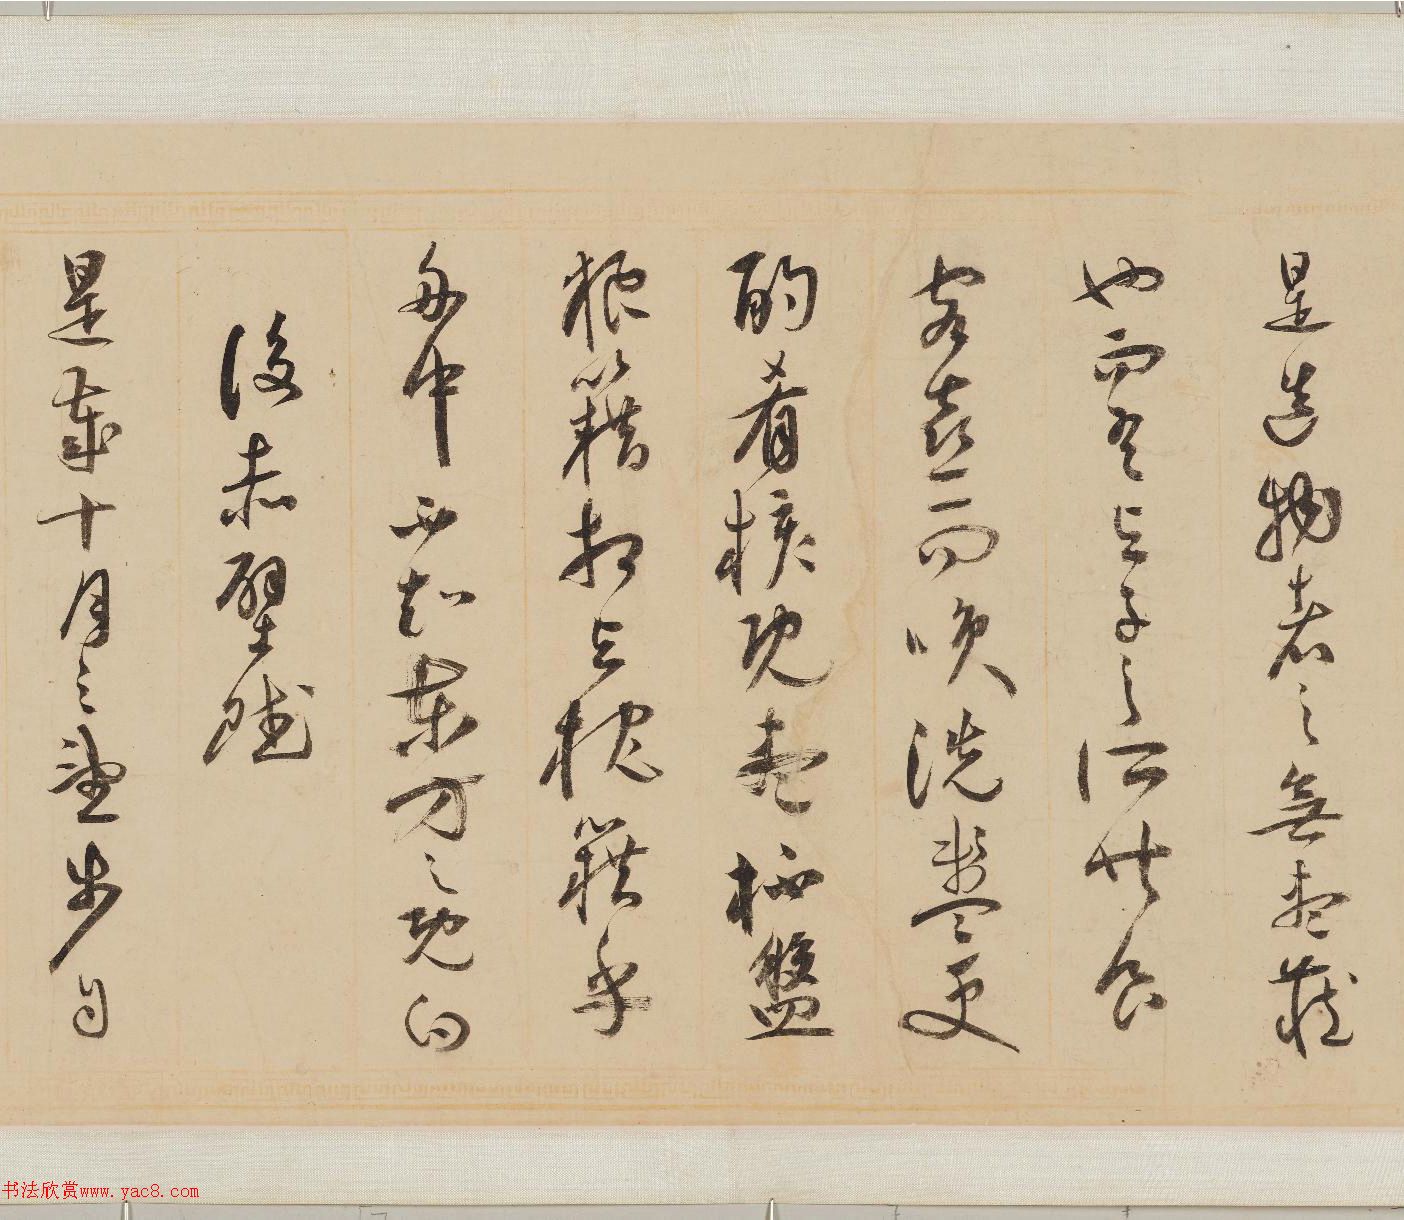 是造物者之無盡藏
也而吾与子之所共食
客喜而咲洗盞更
酌肴核既盡杯盤
狼籍相与枕籍乎
舟中不知東方之既白
後赤壁賦
是歲十月之望步自
书法欣赏www.yac8.com